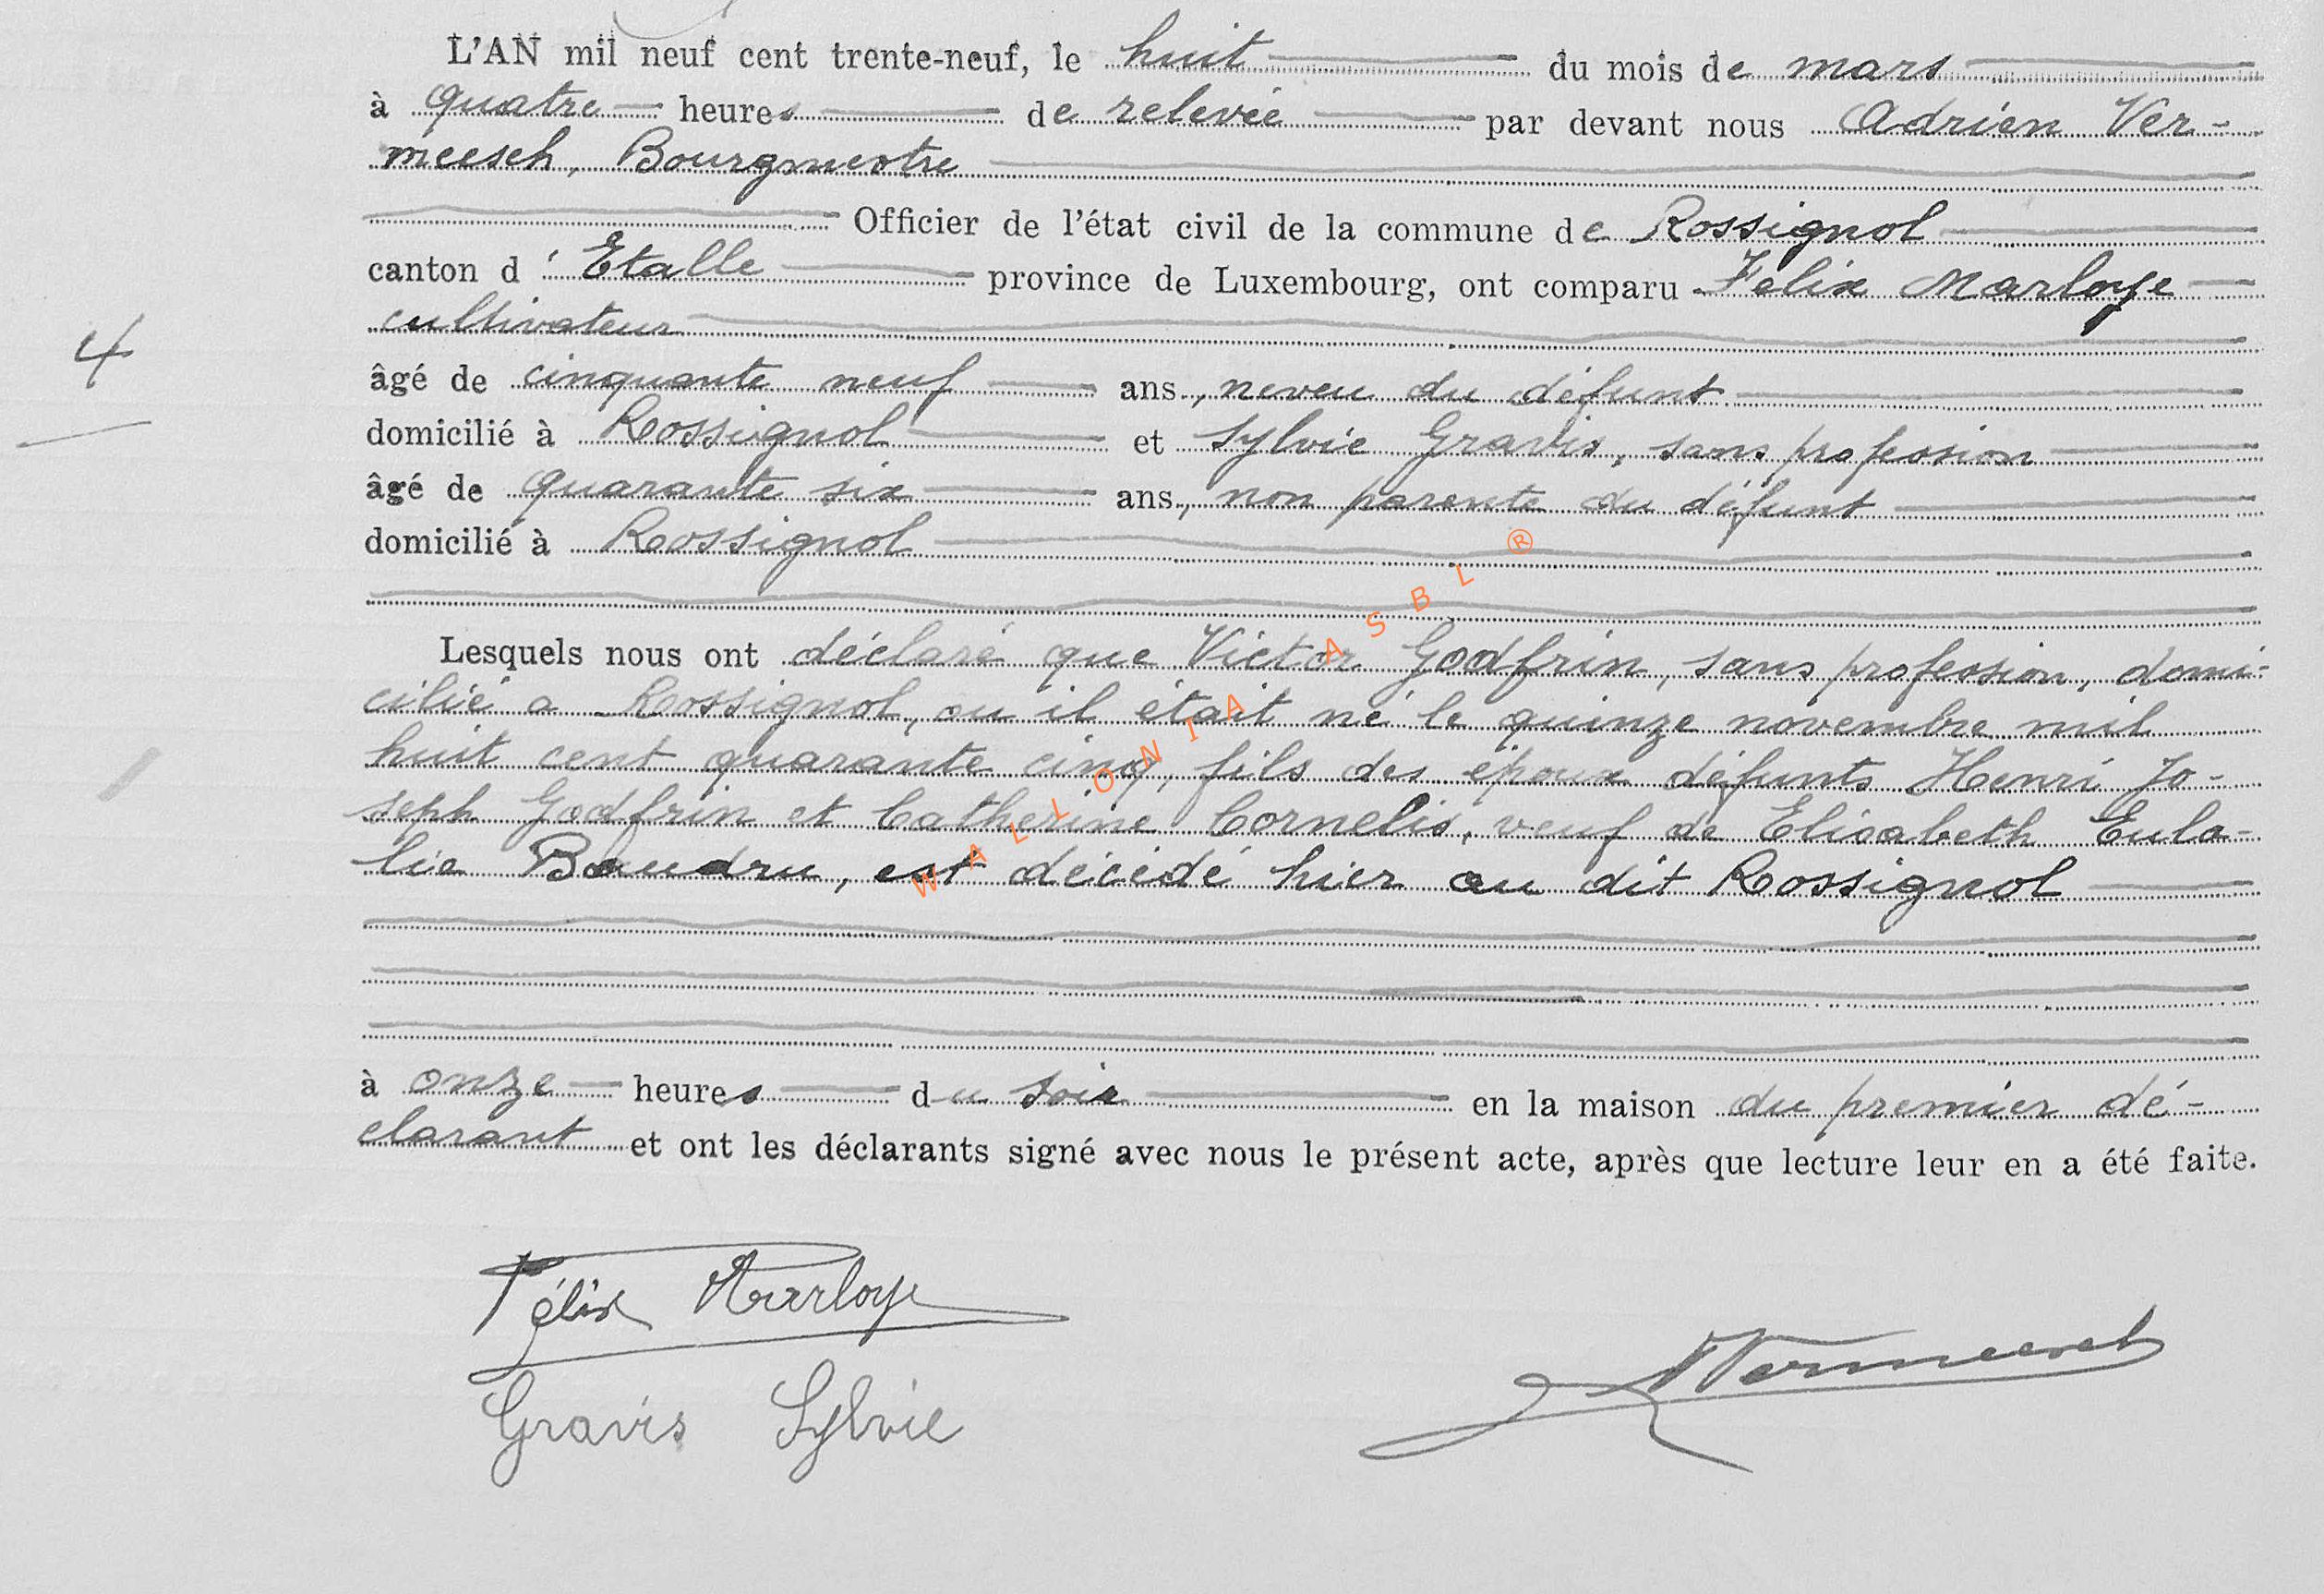 L'AN mil neuf cent trente-neuf, le huit du mois de mars
à quatre heures de relevée par devant nous Adrien Ver-
meesch, Bourgmestre
Officier de l'état civil de la commune de Rossignol
canton d'Etalle province de Luxembourg, ont comparu Félix Marloye
cultivateur
4
âgé de cinquante neuf ans, neveu du défunt
domicilié à Rossignol et Sylvie Gravis, sans profession
âgé de quarante six ans, non parente du défunt
domicilié à Rossignol
Lesquels nous ont déclaré que Victor Godfrin, sans profession, domi-
cilié à Rossignol, ou il était né le quinze novembre mil
huit cent quarante cinq, fils des époux défunts Henri Jo-
seph Godfrin et Catherine Cornelis, veuf de Elisabeth Eula-
lie Baudru, est décédé hier au dit Rossignol
WALLONIA ASBL ®
à onze heures du soir en la maison du premier dé-
clarant et ont les déclarants signé avec nous le présent acte, après que lecture leur en a été faite.
Félix Marloye
Vermeesch
Gravis Sylvie